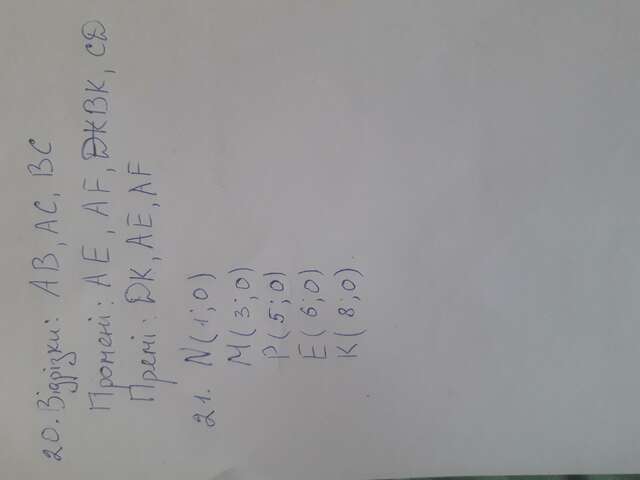 20. Відрізки: AB, AC, BC
Промені: AE, AF, BK, CD
Премі: DK, AE, AF
21. N(1;0)
M(3;0)
P(5;0)
E(6;0)
K(8;0).